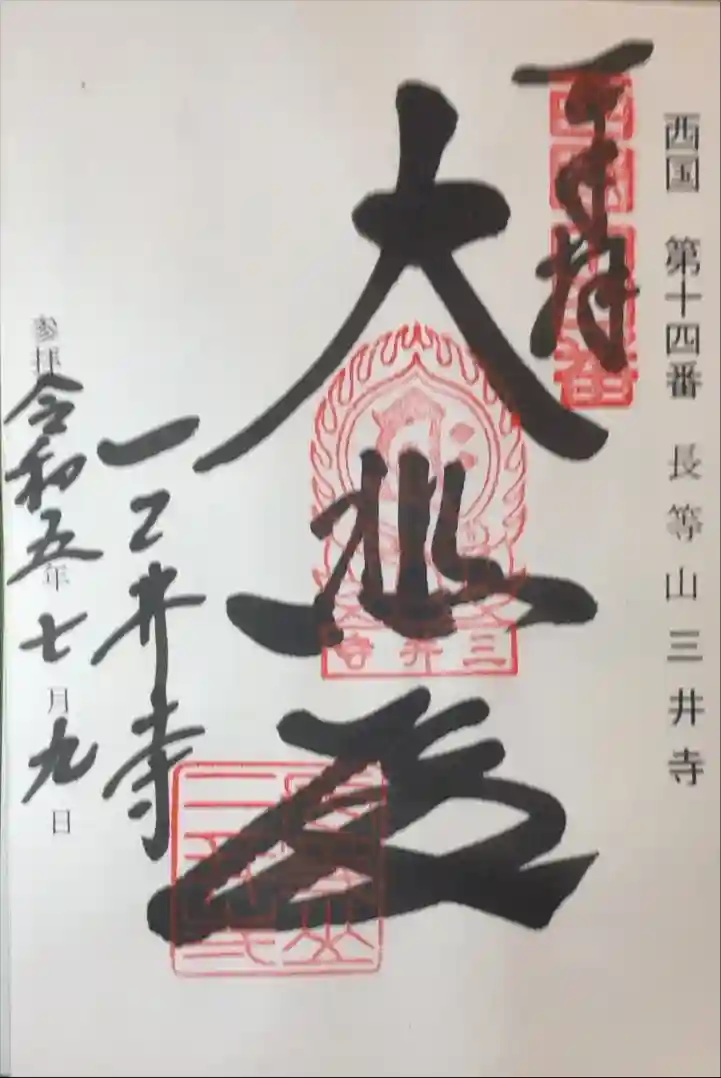 西国 第十四番 長等山 三井寺
奉拝
西国十四番
大悲殿
三井寺
三井寺
参拝 令和五年七月九日